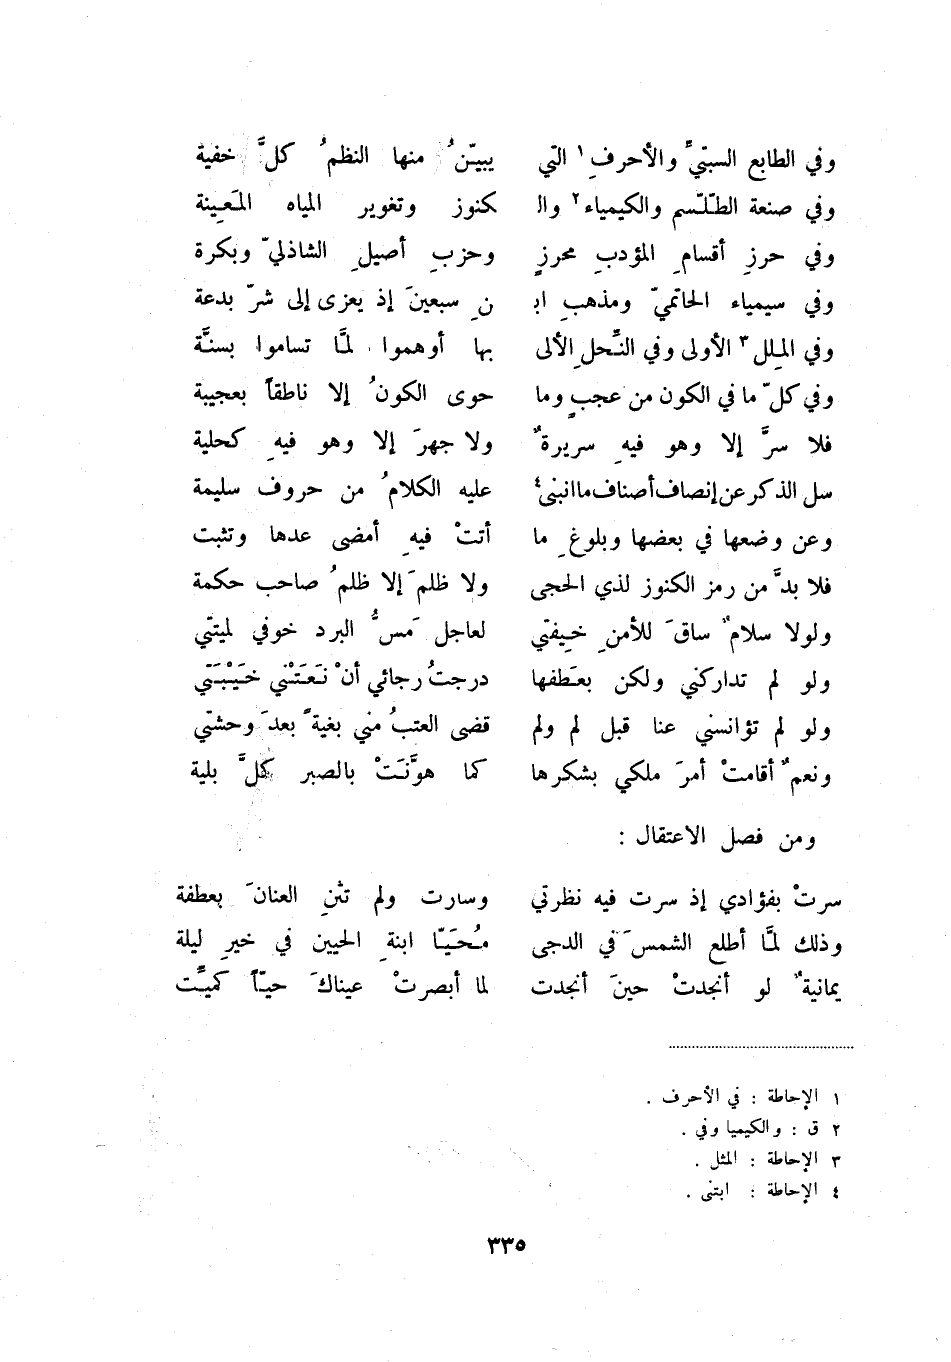 وفي الطابع السبتيِّ والأحرفِ ١ التي يبيّنُ منها النظمُ كلَّ خفية
وفي صنعة الطلّسم والكيمياء ٢ والـ كنوز وتغوير المياه المَعِينة
وفي حرزِ أقسامِ المؤدبِ محرزٍ وحزبِ أصيلِ الشاذليّ وبكرة
وفي سيمياء الحاتميّ ومذهبِ ابـ نِ سبعينَ إذ يعزى إلى شرّ بدعة
وفي المِلل ٣ الأولى وفي النِّحلِ الألى بها أوهموا لمَّا تساموا بسنَّة
وفي كلّ ما في الكون من عجبٍ وما حوى الكونُ إلا ناطقاً بعجيبة
فلا سرَّ إلا وهو فيهِ سريرةٌ ولا جهرَ إلا وهو فيهِ كحلية
سل الذكر عن إنصاف أصناف ما انبنى ٤ عليه الكلامُ من حروف سليمة
وعن وضعها في بعضها وبلوغِ ما أتتْ فيهِ أمضى عدها وتثبت
فلا بدَّ من رمز الكنوز لذي الحجى ولا ظلمَ إلا ظلمُ صاحب حكمة
ولولا سلامٌ ساقَ للأمنِ خيفتي لعاجل مَسُّ البرد خوفي لميتتي
ولو لم تداركني ولكن بعَطفها درجتُ رجائي أنْ نَعَتْني خَيْبَتي
ولو لم تؤانسني عنا قبل لم ولم قضى العتبُ مني بغيةً بعدَ وحشتي
ونعمٌ أقامتْ أمرَ ملكي بشكرها كما هوَّنَتْ بالصبر كلَّ بلية
ومن فصل الاعتقال :
سرتْ بفؤادي إذ سرت فيه نظرتي وسارت ولم تثنِ العنانَ بعطفة
وذلك لمَّا أطلع الشمسَ في الدجى مُحَيّا ابنةِ الحيين في خيرِ ليلة
يمانيةٌ لو أنجدتْ حينَ أنجدت لما أبصرتْ عيناكَ حيّاً كميِّت
١ الإحاطة : في الأحرف .
٢ ق : والكيميا وفي .
٣ الإحاطة : المثل .
٤ الإحاطة : ابتنى .
٣٣٥